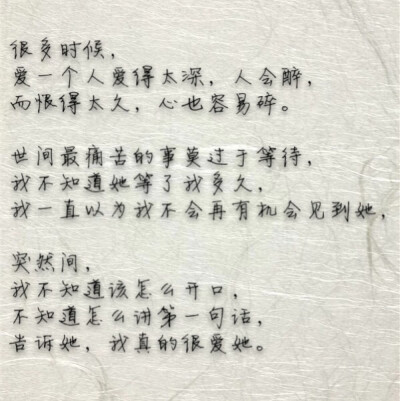 很多时候，
爱一个人爱得太深，人会醉，
而恨得太久，心也容易碎。
世间最痛苦的事莫过于等待，
我不知道她等了我多久，
我一直以为我不会再有机会见到她，
突然间，
我不知道该怎么开口，
不知道怎么讲第一句话，
告诉她，我真的很爱她。